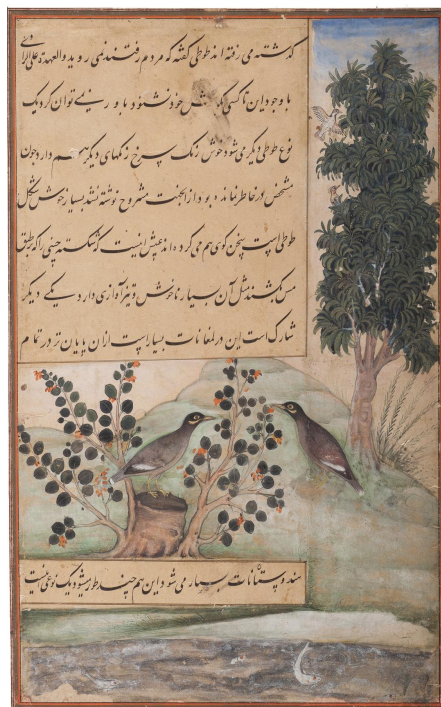 گذشته می رفته اند طوطی گفته که مردم رفتند نمی روید والعهدة علی الراوی
با وجود این تا کسی بگوش خود نشنود باور نمی توان کرد یک
نوع طوطی دیگر می شود خوش رنگ سرخ رنگهای دیگر هم دارد چون
مشخص در خاطر نمانده بود از آنجهت مشروح نوشته نشد بسیار خوش شکل
طوطی است سخن گوی هم می کرده اند عیبش اینست که شکسته چینی را که بر طبق
مس بکشند مثل آن بسیار ناخوش و تیز آوازی دارد یکی دیگر
شارک است این در لمغانات بسیار است از ان پایان تر در تمام
هندوستانات بسیار می شود این هم چند طور میشود یک نوعی اینست